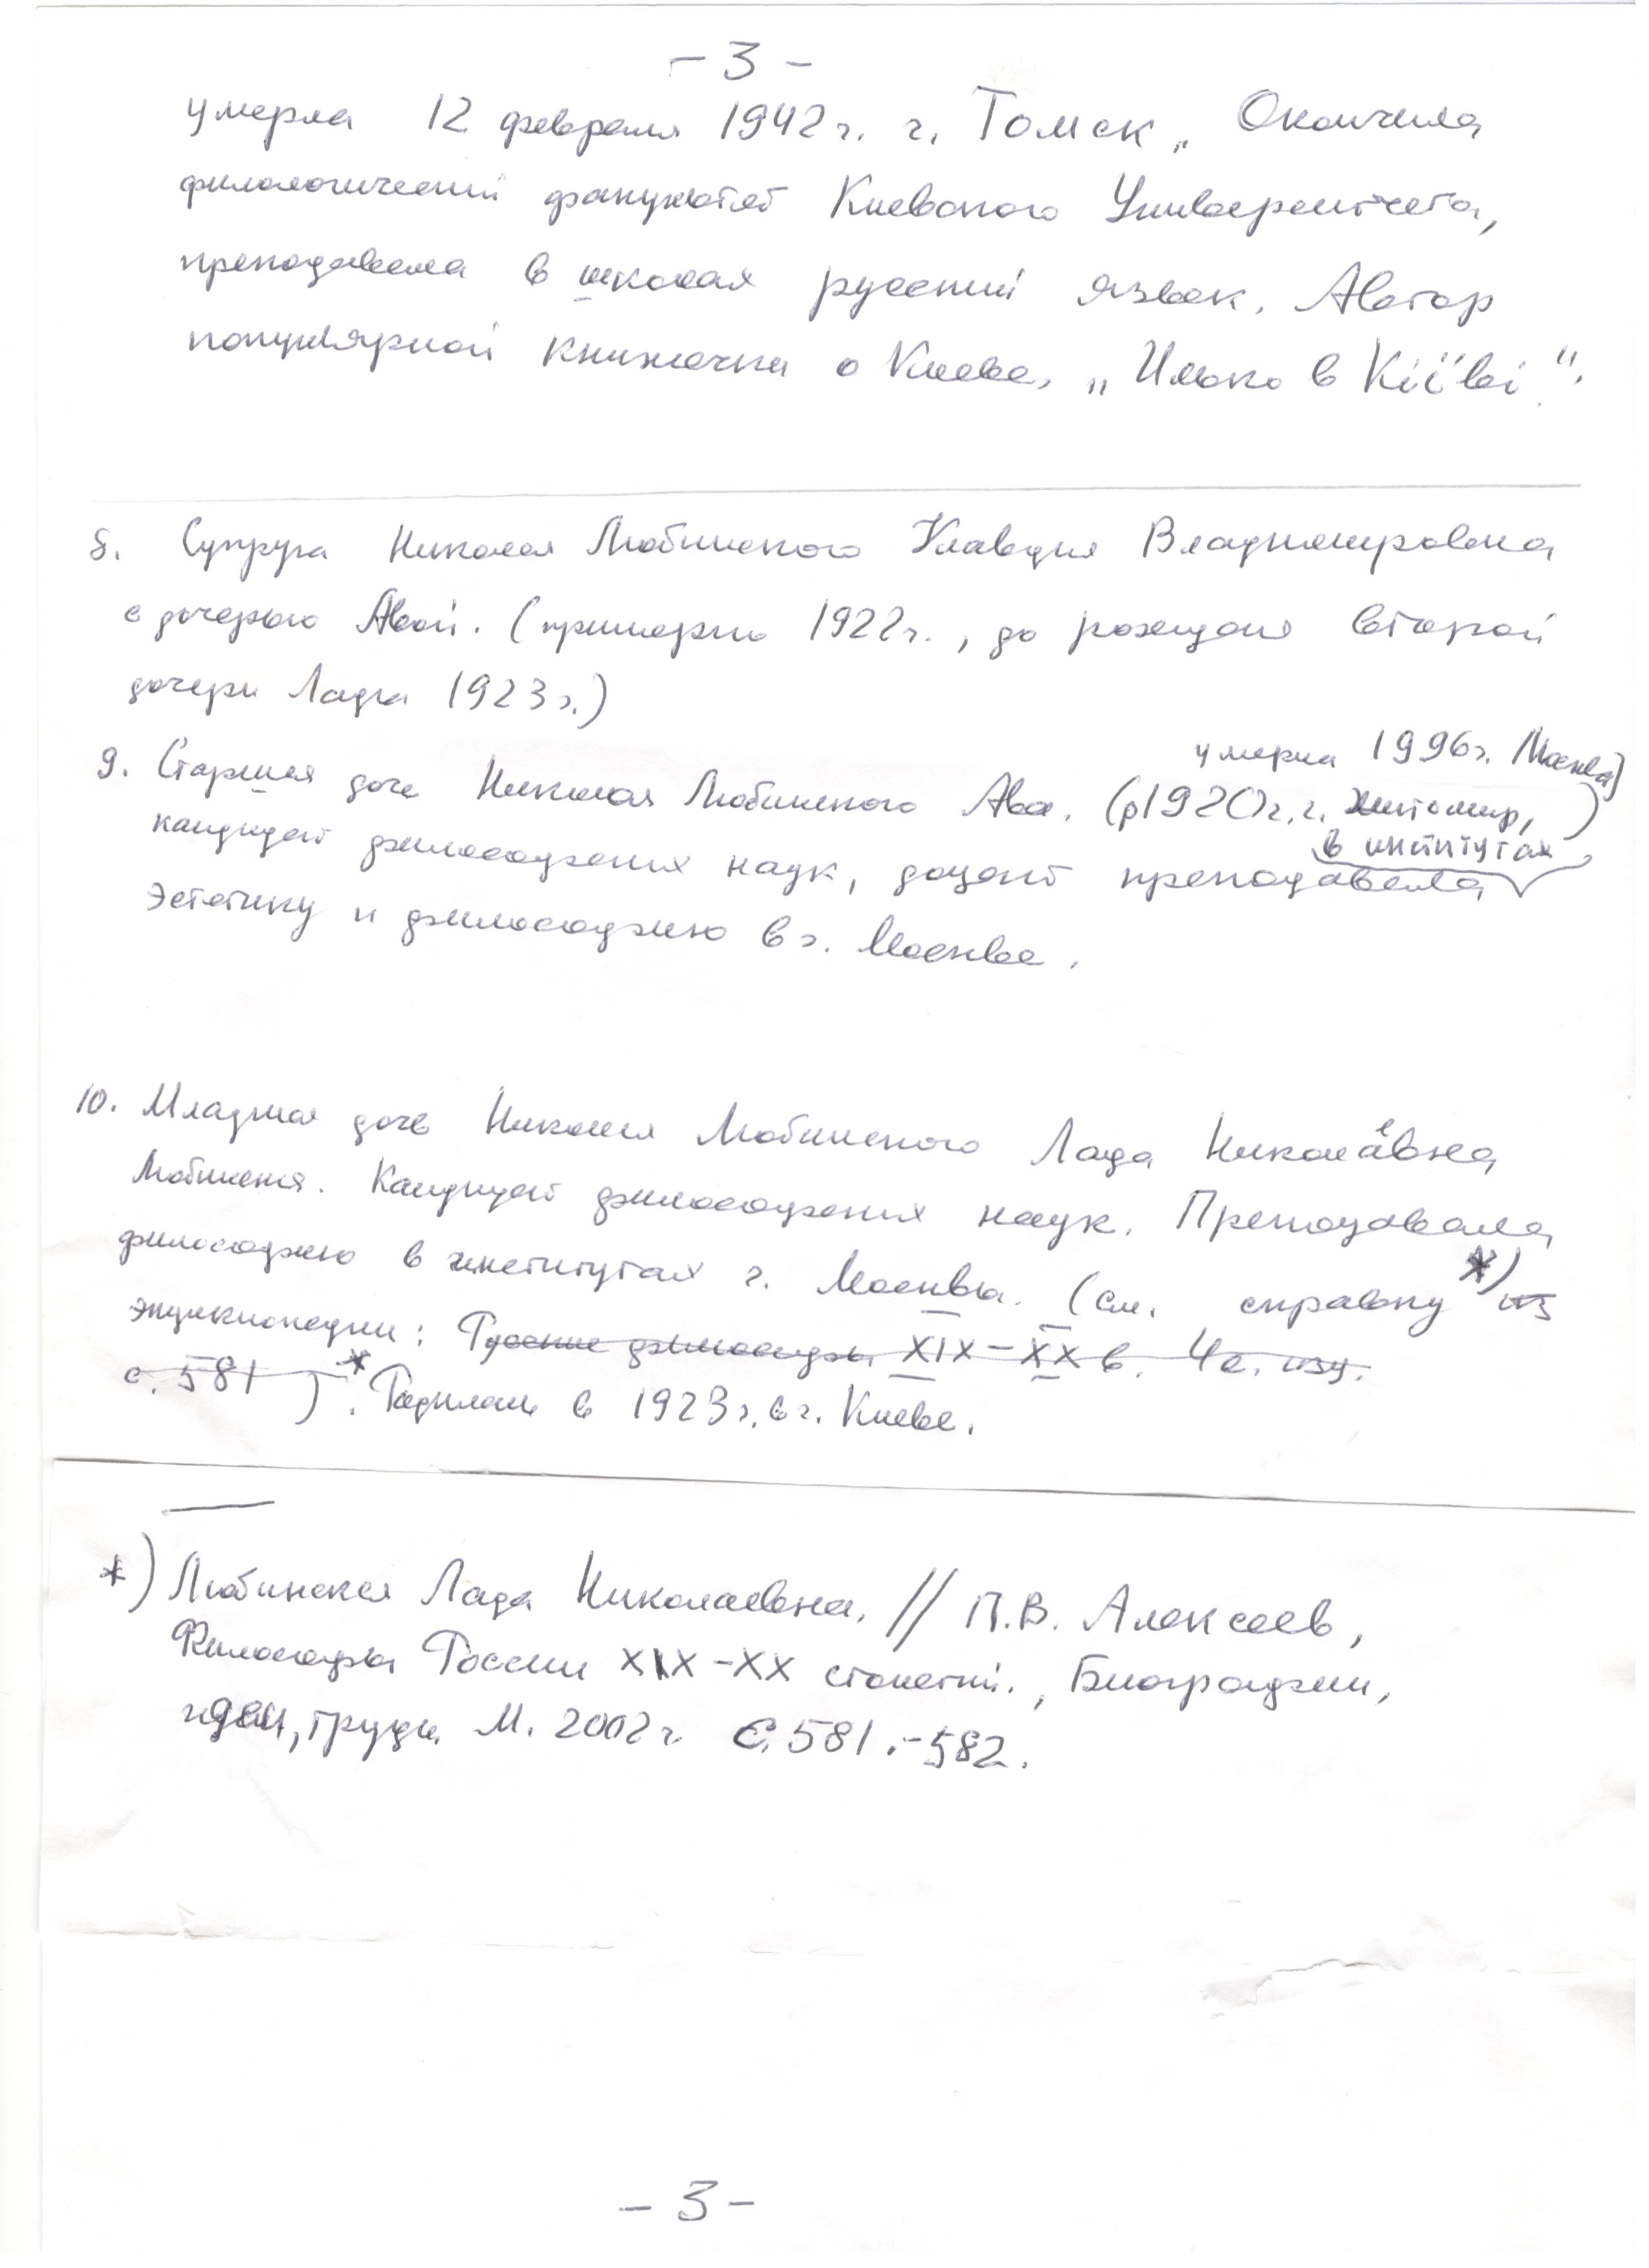 - 3 -
умерла 12 февраля 1942 г. г. Томск. Окончила
филологический факультет Киевского Университета,
преподавала в школах русский язык. Автор
популярной книжечки о Киеве, „Илько в Кіїві".
8. Супруга Николая Любинского Клавдия Владимировна
с дочерью Авой. (примерно 1922 г., до рождения второй
дочери Лады 1923 г.)
умерла 1996 г. Москва)
9. Старшая дочь Николая Любинского Ава. (р 1920 г. г. Житомир,)
в институтах
кандидат философских наук, доцент преподавала
эстетику и философию в г. Москве.
10. Младшая дочь Николая Любинского Лада Николаевна
Любинская. Кандидат философских наук. Преподавала
философию в институтах г. Москвы. (см. справку *) из
энциклопедии: Русские философы XIX-XX в. 4е. изд.
с. 581 )*. Родилась в 1923 г. в г. Киеве.
*) Любинская Лада Николаевна. // П.В. Алексеев,
Философы России XIX-XX столетий., Биографии,
идеи, труды. М. 2002 г. С. 581.-582.
- 3 -